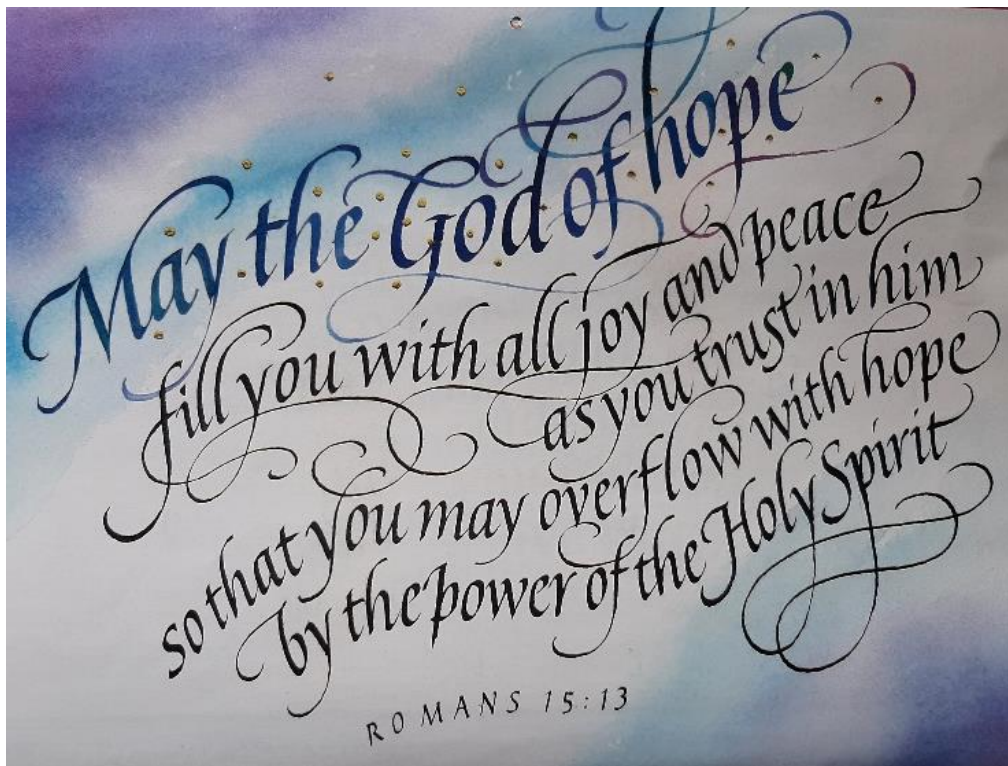 May the God of hope
fill you with all joy and peace
as you trust in him
so that you may overflow with hope
by the power of the Holy Spirit
ROMANS 15:13